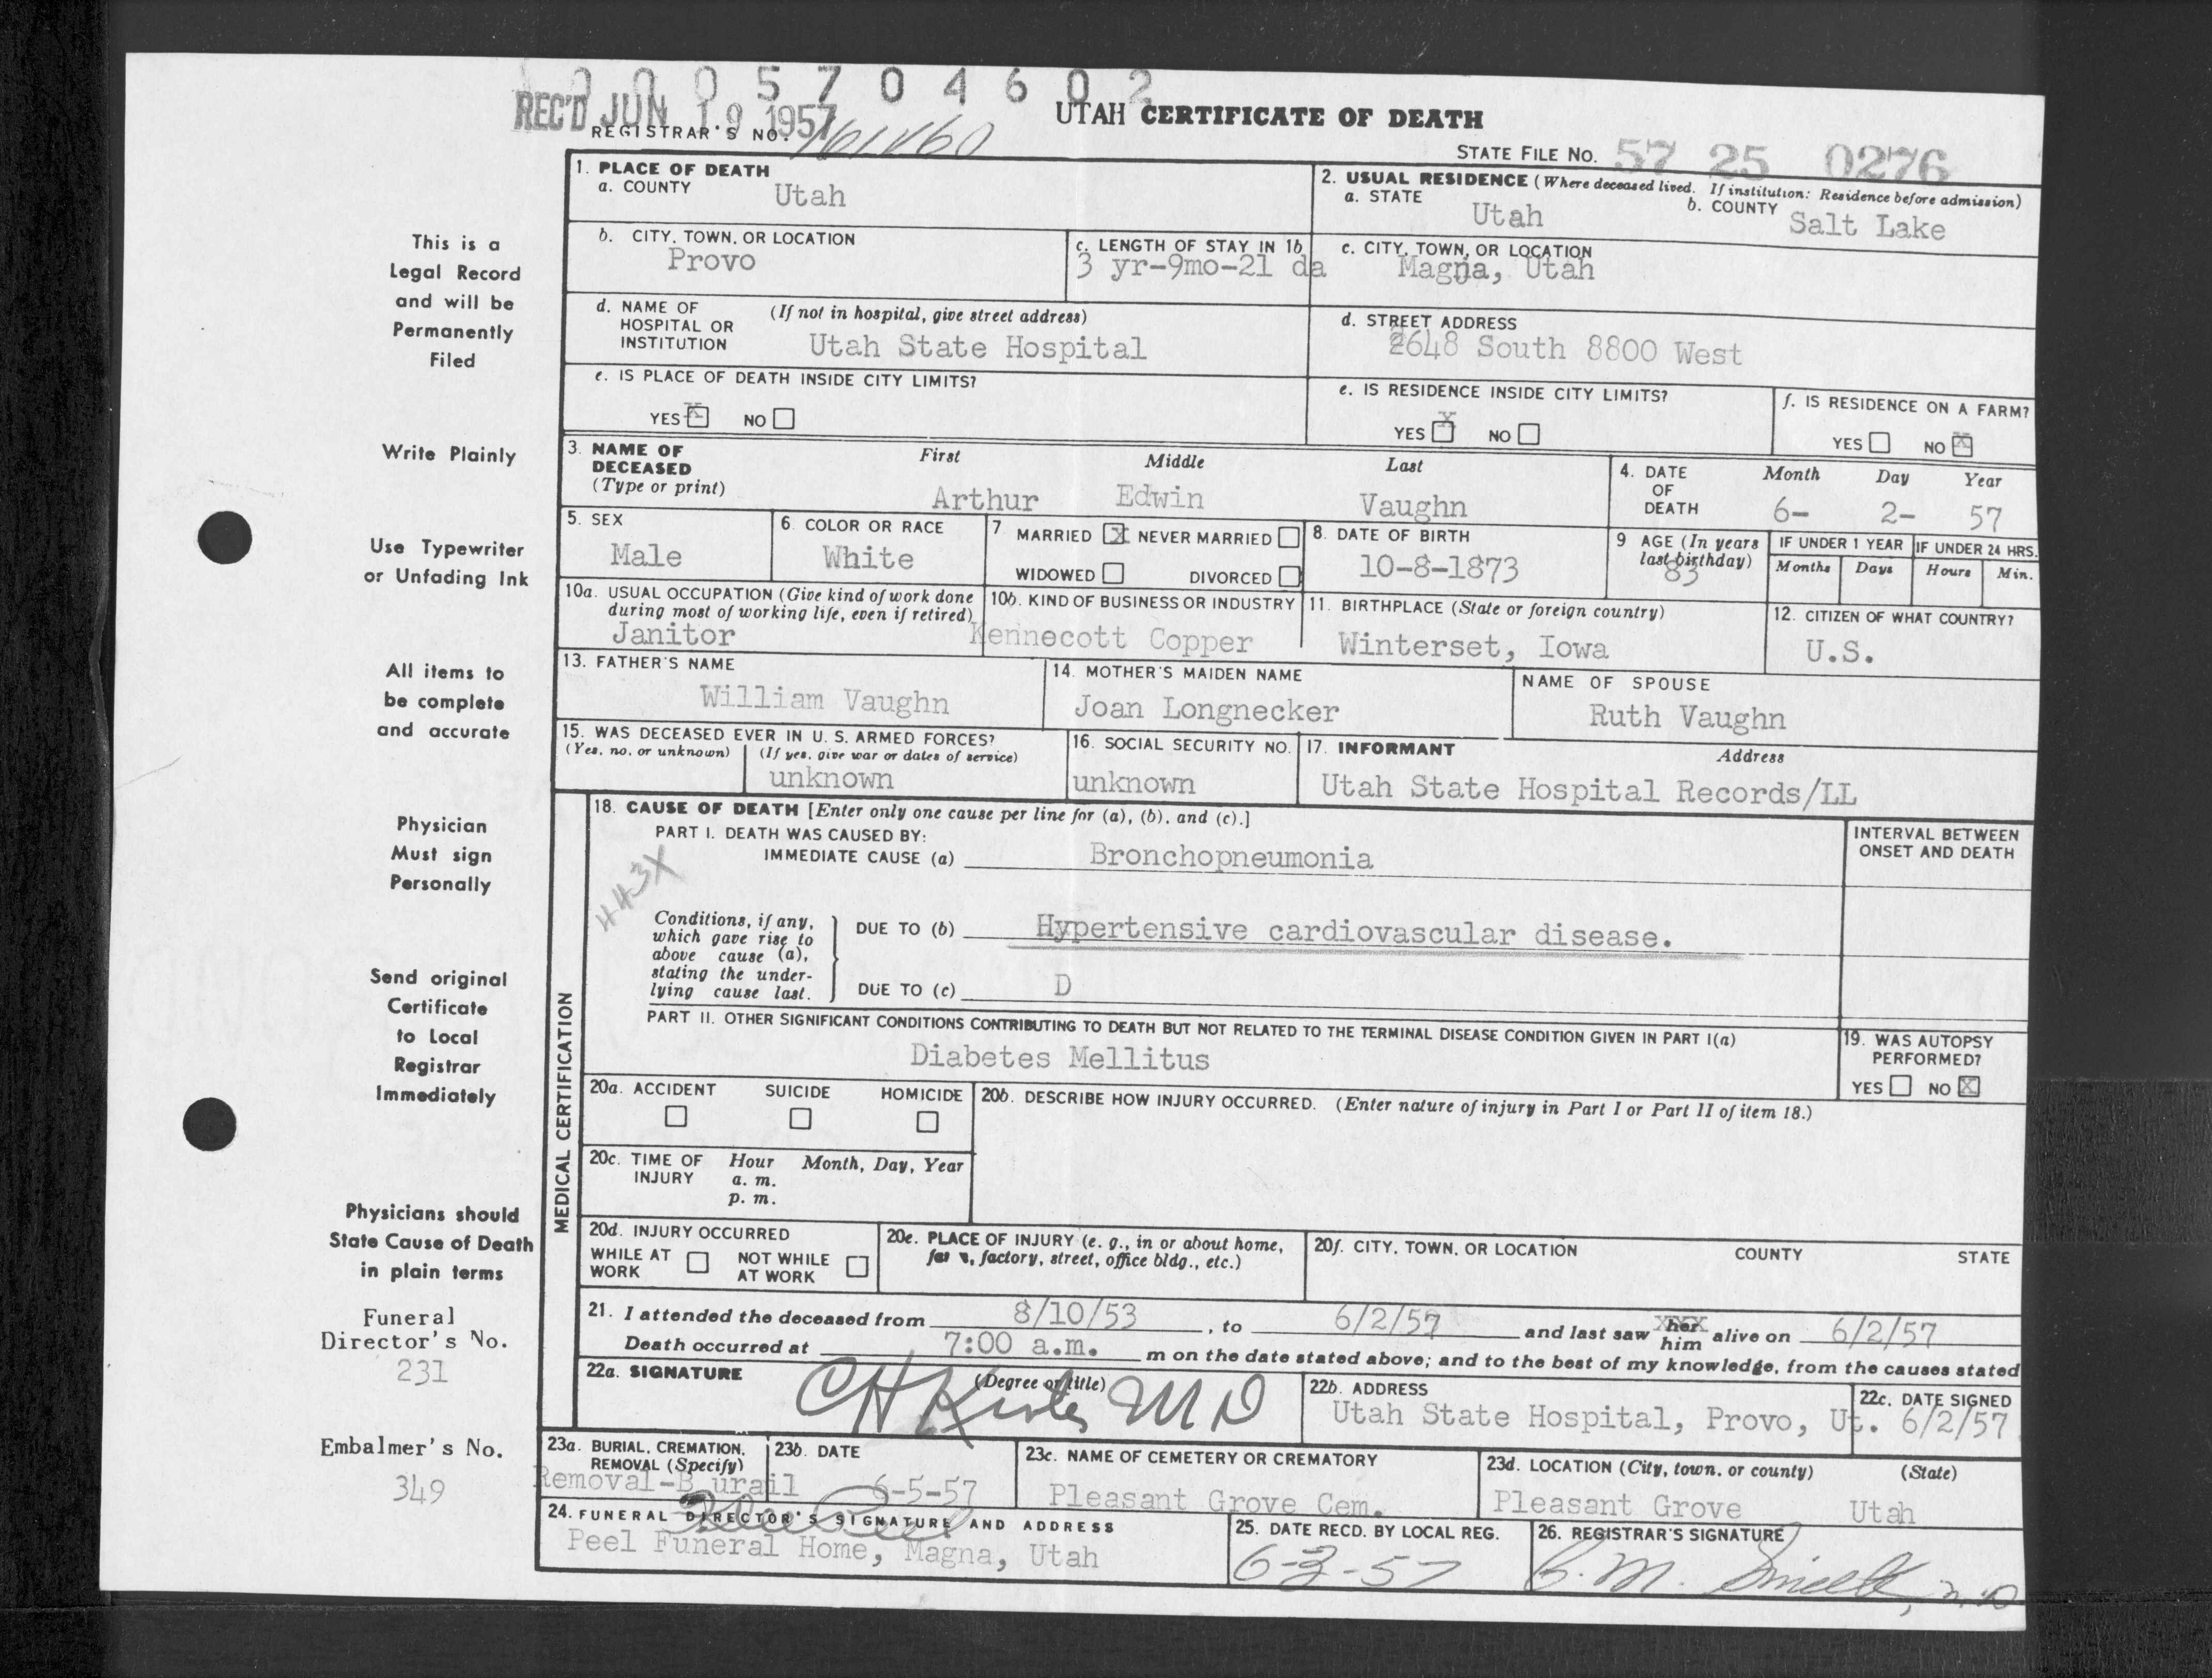 0 0 0 5 7 0 4 6 0 2
REC'D JUN 19 1957
UTAH CERTIFICATE OF DEATH
REGISTRAR'S NO.
STATE FILE NO. 57 25 0276
1. PLACE OF DEATH
a. COUNTY Utah
2. USUAL RESIDENCE (Where deceased lived. If institution: Residence before admission)
a. STATE Utah b. COUNTY Salt Lake
b. CITY, TOWN, OR LOCATION Provo
c. LENGTH OF STAY IN 1b 3 yr-9mo-21 da
c. CITY, TOWN, OR LOCATION Magna, Utah
d. NAME OF HOSPITAL OR INSTITUTION (If not in hospital, give street address)
Utah State Hospital
d. STREET ADDRESS
2648 South 8800 West
e. IS PLACE OF DEATH INSIDE CITY LIMITS?
YES X NO
e. IS RESIDENCE INSIDE CITY LIMITS?
YES X NO
f. IS RESIDENCE ON A FARM?
YES NO X
3. NAME OF DECEASED (Type or print)
First Middle Last
Arthur Edwin Vaughn
4. DATE OF DEATH
Month Day Year
6- 2- 57
5. SEX
Male
6. COLOR OR RACE
White
7 MARRIED X NEVER MARRIED
WIDOWED DIVORCED
8. DATE OF BIRTH
10-8-1873
9 AGE (In years last birthday)
83
IF UNDER 1 YEAR
Months Days
IF UNDER 24 HRS.
Hours Min.
10a. USUAL OCCUPATION (Give kind of work done during most of working life, even if retired)
Janitor
10b. KIND OF BUSINESS OR INDUSTRY
Kennecott Copper
11. BIRTHPLACE (State or foreign country)
Winterset, Iowa
12. CITIZEN OF WHAT COUNTRY?
U.S.
13. FATHER'S NAME
William Vaughn
14. MOTHER'S MAIDEN NAME
Joan Longnecker
NAME OF SPOUSE
Ruth Vaughn
15. WAS DECEASED EVER IN U. S. ARMED FORCES?
(Yes, no, or unknown) (If yes, give war or dates of service)
unknown
16. SOCIAL SECURITY NO.
unknown
17. INFORMANT Address
Utah State Hospital Records/LL
MEDICAL CERTIFICATION
18. CAUSE OF DEATH [Enter only one cause per line for (a), (b), and (c).]
PART I. DEATH WAS CAUSED BY:
IMMEDIATE CAUSE (a) Bronchopneumonia
INTERVAL BETWEEN
ONSET AND DEATH
443X
Conditions, if any,
which gave rise to
above cause (a),
stating the under-
lying cause last.
DUE TO (b) Hypertensive cardiovascular disease.
DUE TO (c) D
PART II. OTHER SIGNIFICANT CONDITIONS CONTRIBUTING TO DEATH BUT NOT RELATED TO THE TERMINAL DISEASE CONDITION GIVEN IN PART I(a)
Diabetes Mellitus
19. WAS AUTOPSY PERFORMED?
YES NO X
20a. ACCIDENT SUICIDE HOMICIDE
20b. DESCRIBE HOW INJURY OCCURRED. (Enter nature of injury in Part I or Part II of item 18.)
20c. TIME OF INJURY Hour Month, Day, Year
a. m.
p. m.
20d. INJURY OCCURRED
WHILE AT WORK NOT WHILE AT WORK
20e. PLACE OF INJURY (e. g., in or about home, farm, factory, street, office bldg., etc.)
20f. CITY, TOWN, OR LOCATION COUNTY STATE
21. I attended the deceased from 8/10/53, to 6/2/57 and last saw her him alive on 6/2/57
Death occurred at 7:00 a.m. m on the date stated above; and to the best of my knowledge, from the causes stated
22a. SIGNATURE (Degree or title)
MD
22b. ADDRESS
Utah State Hospital, Provo, Ut.
22c. DATE SIGNED
6/2/57
23a. BURIAL, CREMATION, REMOVAL (Specify)
Removal-B urail
23b. DATE
6-5-57
23c. NAME OF CEMETERY OR CREMATORY
Pleasant Grove Cem.
23d. LOCATION (City, town, or county) (State)
Pleasant Grove Utah
24. FUNERAL DIRECTOR'S SIGNATURE AND ADDRESS
Peel Funeral Home, Magna, Utah
25. DATE RECD. BY LOCAL REG.
6-3-57
26. REGISTRAR'S SIGNATURE
This is a
Legal Record
and will be
Permanently
Filed
Write Plainly
Use Typewriter
or Unfading Ink
All items to
be complete
and accurate
Physician
Must sign
Personally
Send original
Certificate
to Local
Registrar
Immediately
Physicians should
State Cause of Death
in plain terms
Funeral
Director's No.
231
Embalmer's No.
349